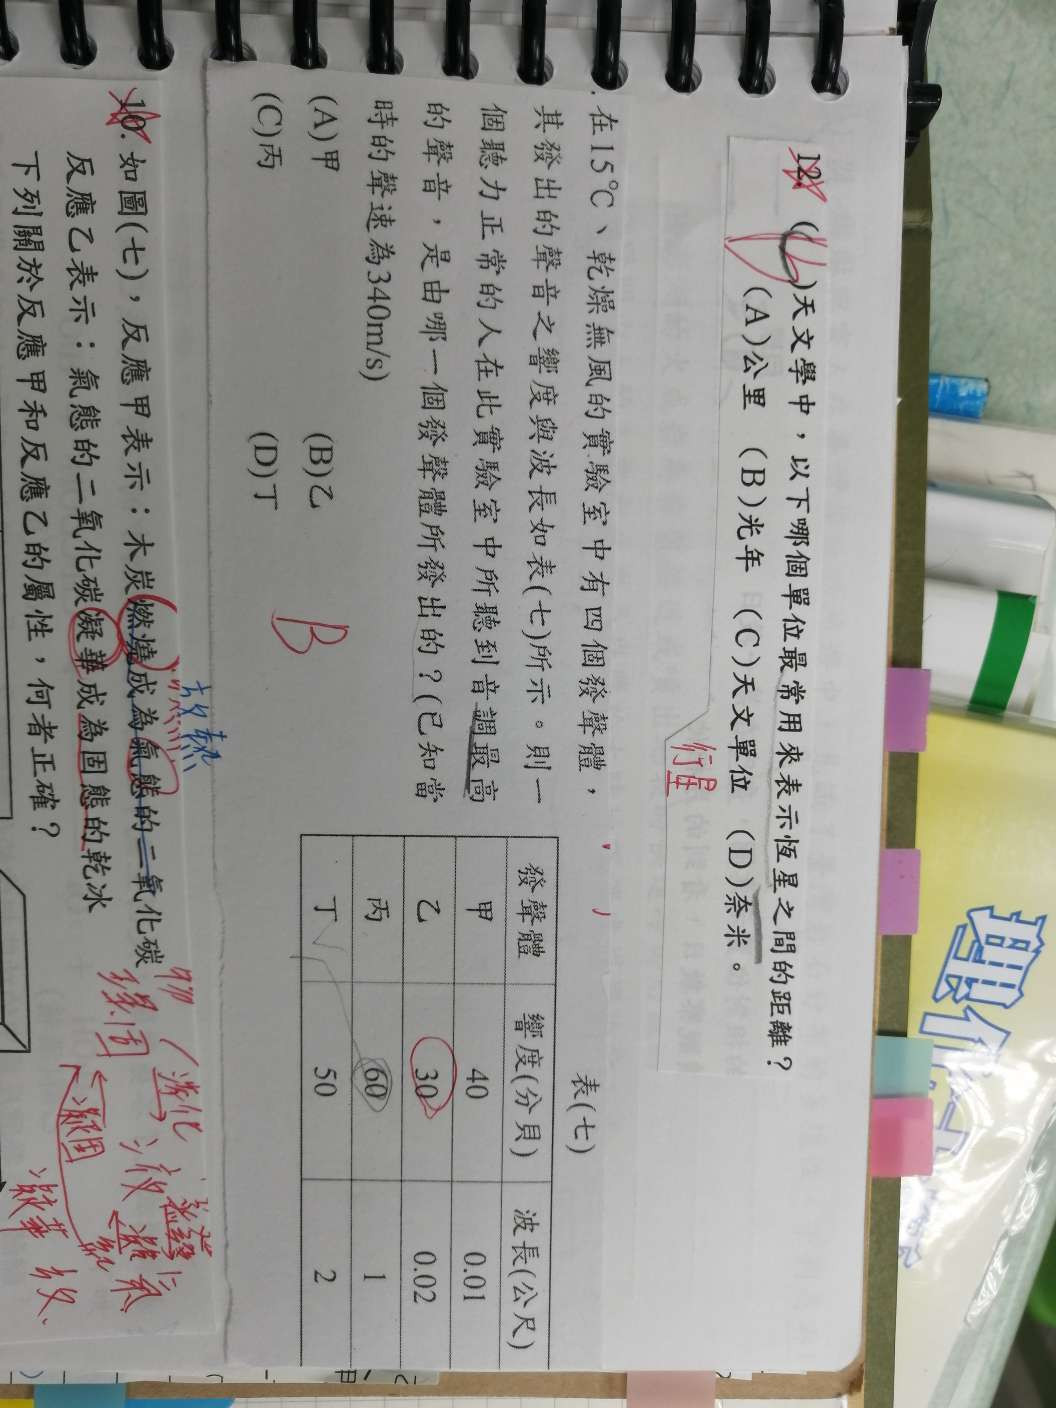 12. ( )天文學中，以下哪個單位最常用來表示恆星之間的距離？
(A)公里 (B)光年 (C)天文單位 (D)奈米。
行星
在15℃、乾燥無風的實驗室中有四個發聲體，
其發出的聲音之響度與波長如表(七)所示。則一
個聽力正常的人在此實驗室中所聽到音調最高
的聲音，是由哪一個發聲體所發出的？(已知當
時的聲速為340m/s)
(A)甲 (B)乙
(C)丙 (D)丁
B
表(七)
發聲體 響度(分貝) 波長(公尺)
甲 40 0.01
乙 30 0.02
丙 60 1
丁 50 2
放熱
10. 如圖(七)，反應甲表示：木炭燃燒成為氣態的二氧化碳
反應乙表示：氣態的二氧化碳凝華成為固態的乾冰
下列關於反應甲和反應乙的屬性，何者正確？
凝固
凝華 放